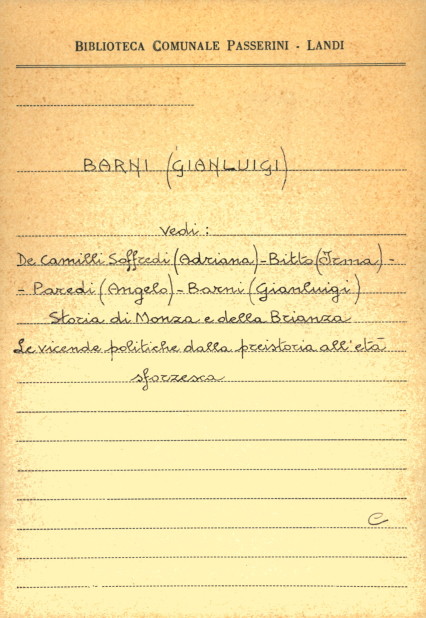 BIBLIOTECA COMUNALE PASSERINI - LANDI
BARNI (GIANLUIGI)
Vedi:
De Camilli Soffredi (Adriana) - Bitto (Irma) -
- Paredi (Angelo) - Barni (Gianluigi)
Storia di Monza e della Brianza
Le vicende politiche dalla preistoria all'età
sforzesca
C